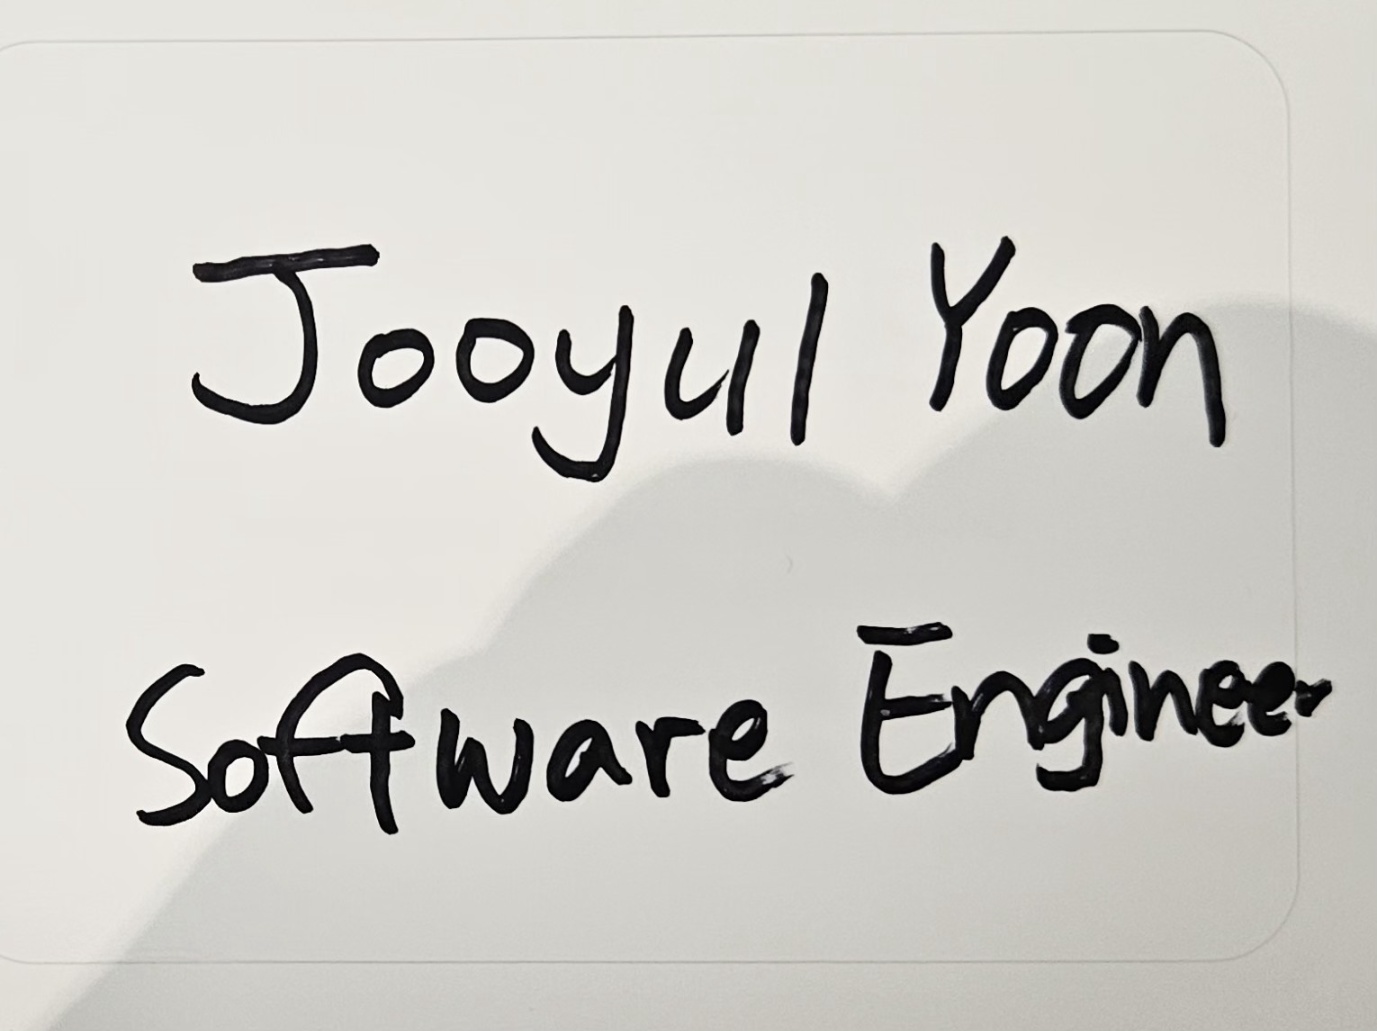 Jooyul Yoon
Software Engineer